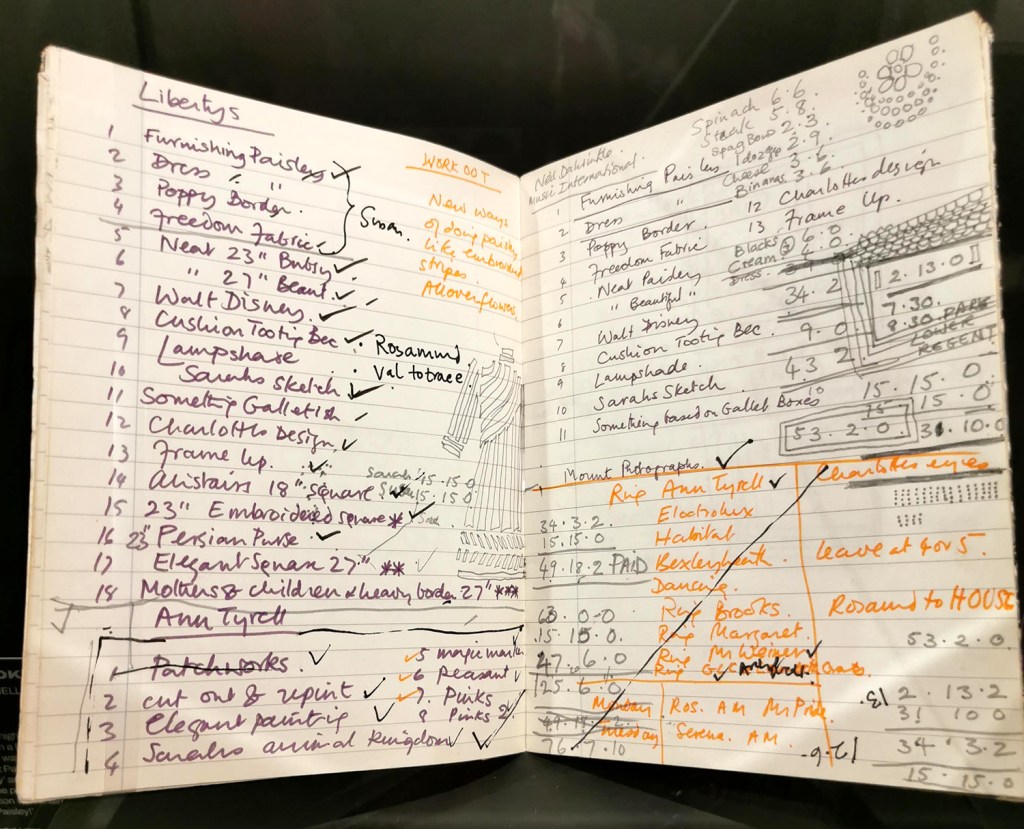 Libertys
1 Furnishing Paisleys
2 Dress " "
3 Poppy Border.
4 Freedom Fabric
Susan.
5 Neat 23" Butsy
6 " 27" Beaut.
7 Walt Disney
8 Cushion Tooting Bec
9 Lampshade
10 Sarahs Sketch
11 Something Galletish
12 Charlottes Design
13 Frame Up.
14 Alistairs 18" square
15 23" Embroidered square *
16 23" Persian Purse
17 Elegant Square 27" **
18 Mothers & children & heavy border 27" ***
Ann Tyrell
WORK OUT
New ways
of doing paisley
like embroidered
stripes
All over flowers
Rosamund
Val to trace
Sarah 15.15.0
15.15.0
1 Patchworks
2 cut out & repint
3 Elegant painting
4 Sarahs animal kingdom
5 magic marker
6 Peasant
7. Pinks
8 Pinks 2
Spinach 6.6
Steak 5.8
Spag Bono 2.3
1 dozegg 2.9
Cheese 3.6
Binanas 3.6
Music International.
1 Furnishing Paisleys
2 Dress "
3 Poppy Border.
4 Freedom Fabric
5 Neat Paisley
6 " Beautiful "
7 Walt Disney
8 Cushion Tooting Bec.
9 Lampshade.
10 Sarahs Sketch
11 Something based on Gallet Boxes
12 Charlottes design
13 Frame Up.
Blacks 6.0
Cream
Dress
34.2
9.0
43 2
2.13.0
7.30.
8.30 PARK
LOWER
REGENT
15.15.0
15.15.0
53.2.0
31.10.0
Mount Photographs.
Ring Ann Tyrell
Electrolux
Habitat
Bexleyheath
Dancing.
Ring Brooks.
Ring Margaret.
Ring Mr Weiner
34.3.2
15.15.0
49.18.2 PAID
63.0.0
15.15.0.
47.6.0
125.6.0
76.7.10
Monday Ros. AM
Tuesday Serena. AM.
Charlottes eyes
leave at 4 or 5.
Rosamund to HOUSE
53.2.0
2.13.2
31 10 0
34.3.2
15.15.0
13.
12.6